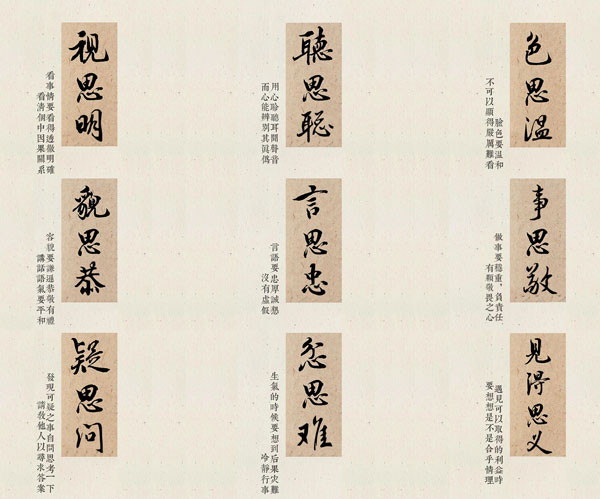 視思明
看事情要看得透徹明確
看清個中因果關系
聽思聡
用心聆聽耳聞聲音
而心能辨別其眞僞
色思温
臉色要温和
不可以顯得嚴厲難看
貌思恭
容貌要謙遜恭敬有禮
講話語氣要平和
言思忠
言語要忠厚誠懇
沒有虛假
事思敬
做事要穩重，負責任
有顆敬畏之心
疑思问
發現可疑之事自問思考一下
請教他人以尋求答案
忿思难
生氣的時候要想到后果災難
冷靜行事
見得思义
遇見可以取得的利益時
要想想是不是合乎情理